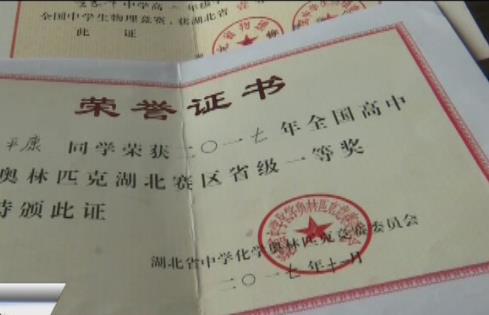 中学高
全国中学生物理竞赛,获湖北省
此 证
荣誉证书
平康 同学荣获二〇一七年全国高中
奥林匹克湖北赛区省级一等奖
特颁此证
湖北省中学化学奥林匹克竞赛委员会
二〇一七年十一月